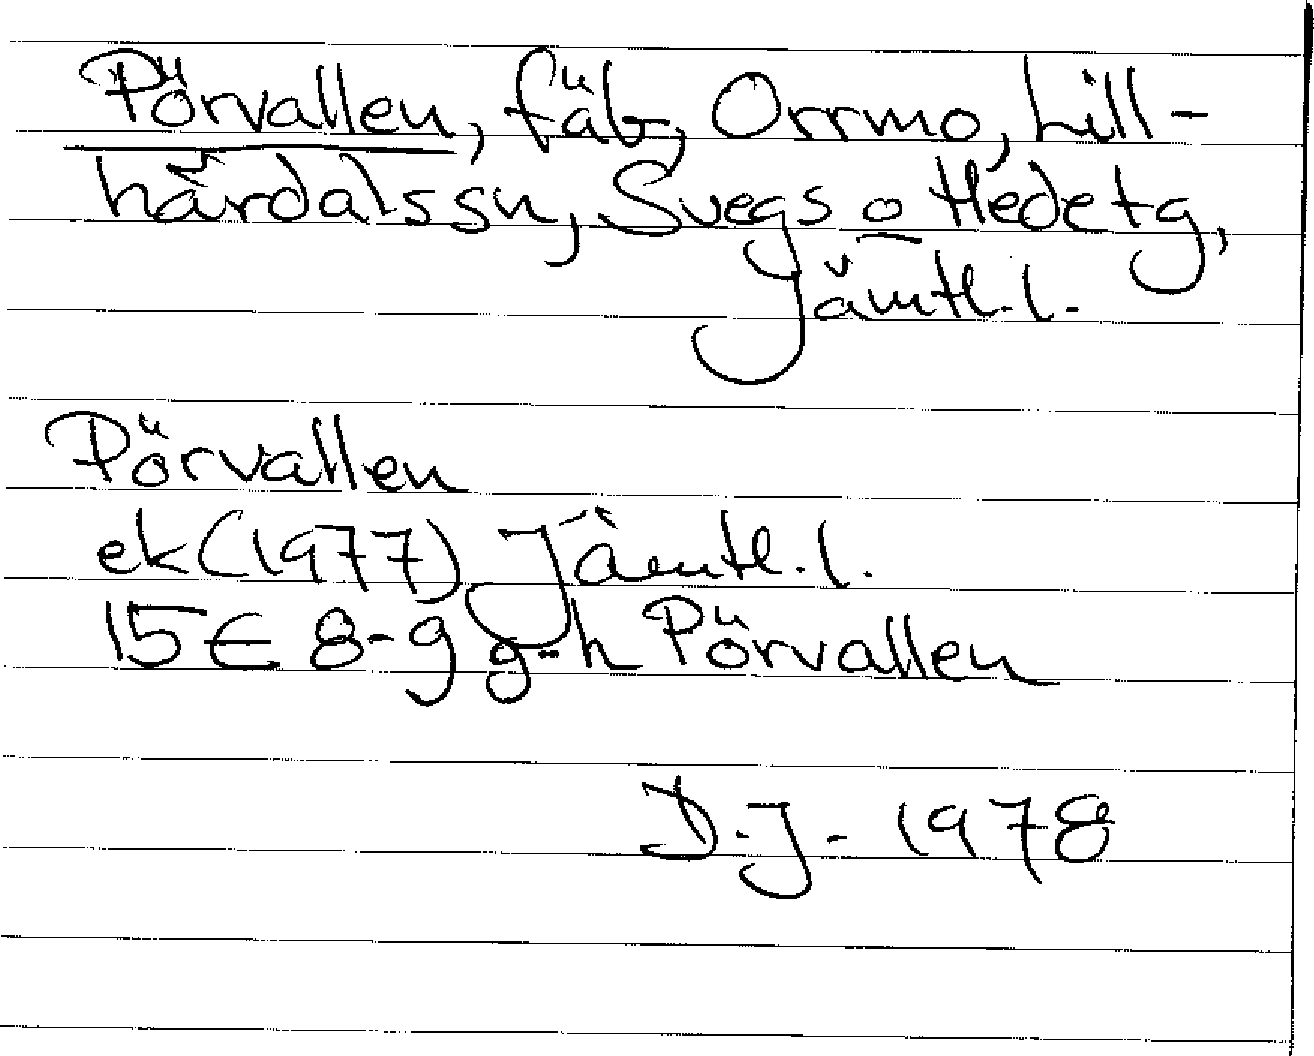 Pörvallen, fäb, Orrmo, Lill-
härdalssn, Svegs o Hedetg,
Jämtl.l.
Pörvallen
ek(1977) Jämtl.l.
15E 8-9 g-h Pörvallen
D.J. 1978